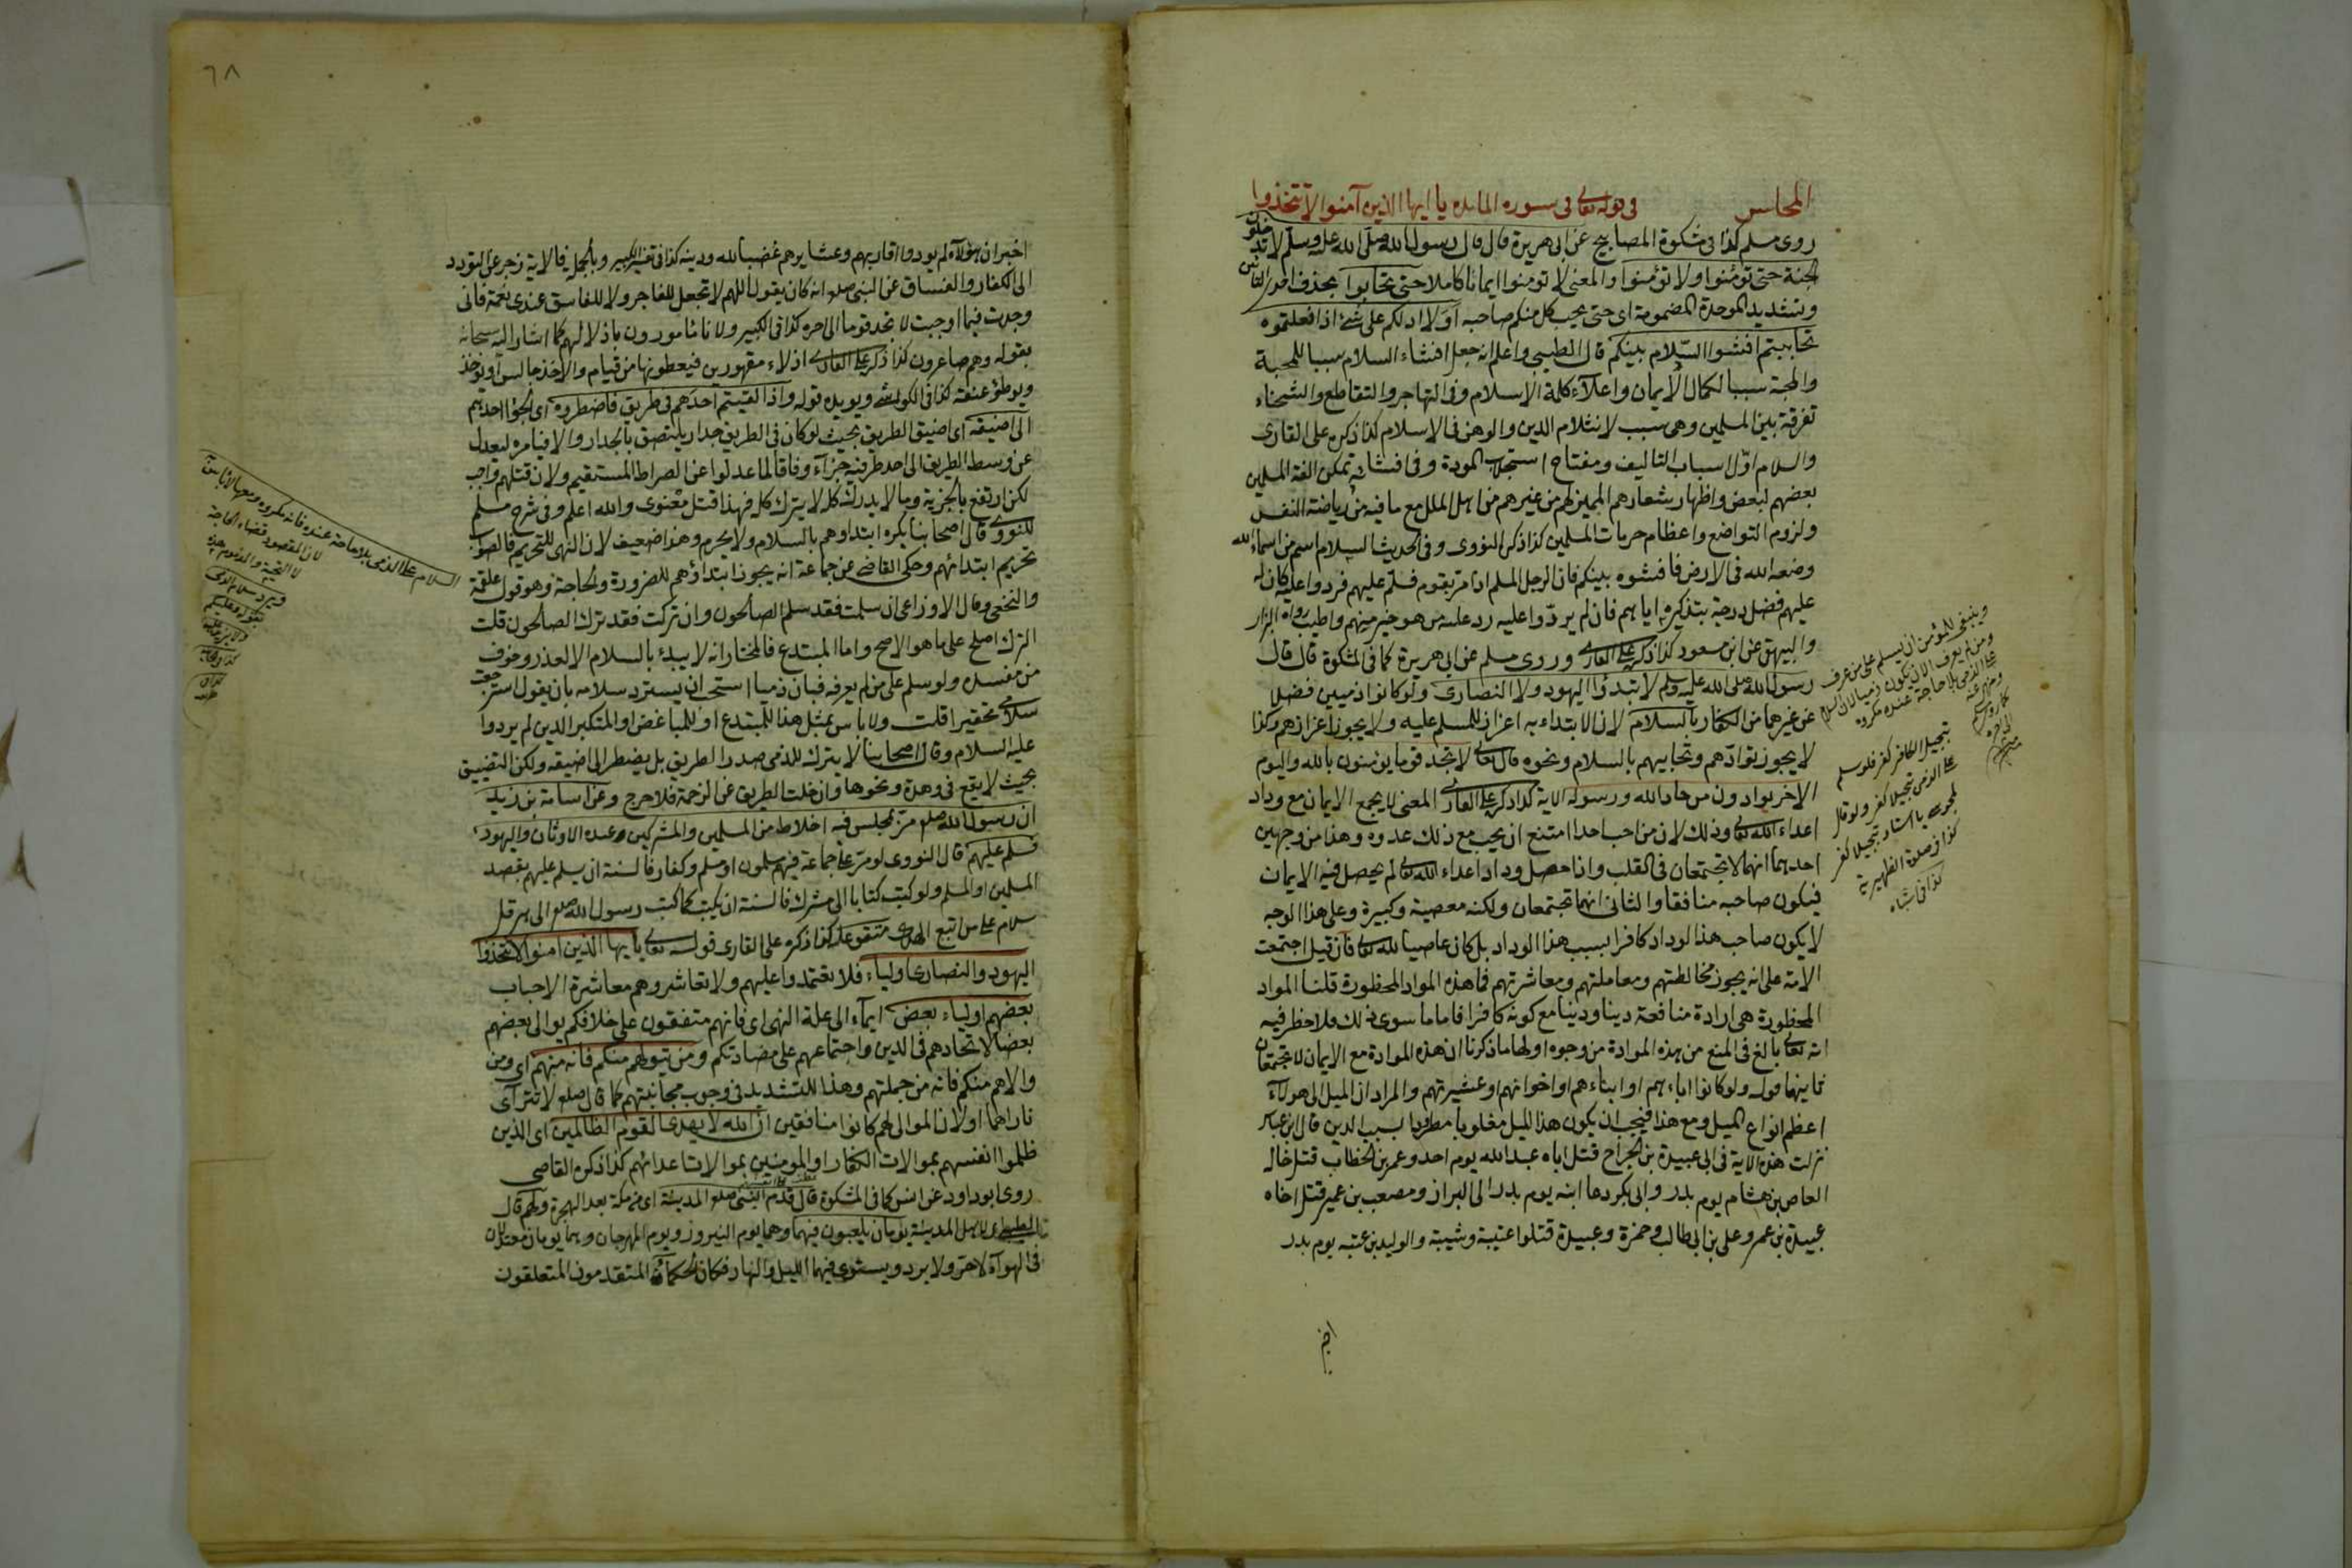 المجلس في قوله تعالى في سورة المائدة يا ايها الذين آمنوا لا تتخذوا
روى مسلم كذا في مشكوة المصابيح عن ابي هريرة قال قال رسول الله صلى الله عليه وسلم لا تدخلون
الجنة حتى تؤمنوا ولا تؤمنوا والمعنى لا تومنوا ايمانا كاملا حتى تحابوا بحذف احدى التائين
وتشديد الموحدة المضمومة اى حتى يحب كل منكم صاحبه اولا ادلكم على شئ اذا فعلتموه
تحاببتم افشوا السلام بينكم قال الطيبي واعلم انه جعل افشاء السلام سببا للمحبة
والمحبة سببا لكمال الايمان واعلاء كلمة الاسلام وفي التهاجر والتقاطع والشحناء
تفرقة بين المسلمين وهى سبب لانثلام الدين والوهن في الاسلام كذا ذكره على القارى
والسلام اول اسباب التاليف ومفتاح استجلاب المودة وفي افشائه تمكن الفة المسلمين
بعضهم لبعض واظهار شعارهم المميز لهم من غيرهم من اهل الملل مع ما فيه من رياضة النفس
ولزوم التواضع واعظام حرمات المسلمين كذا ذكر النووى وفي الحديث السلام اسم من اسماء الله
وضعه الله في الارض فافشوه بينكم فان الرجل المسلم اذا مر بقوم فسلم عليهم فردوا عليه كان له
عليهم فضل درجة بتذكيره اياهم فان لم يردوا عليه رد عليه من هو خير منهم واطيب رواه البزار
والبيهقى عن ابن مسعود كذا ذكر على القارى وروى مسلم عن ابي هريرة كما في المشكوة قال قال
رسول الله صلى الله عليه وسلم لا تبدؤا اليهود ولا النصارى ولو كانوا ذميين فضلا
عن غيرهما من الكفار بالسلام لان الابتداء به اعزاز للمسلم عليه ولا يجوز اعزازهم وكذا
لا يجوز توادهم وتحابيهم بالسلام ونحوه قال تعالى لا تجد قوما يؤمنون بالله واليوم
الاخر يوادون من حاد الله ورسوله الاية كذا ذكر على القارى المعنى لا يجمع الايمان مع وداد
اعداء الله تعالى وذلك لان من احب احدا امتنع ان يحب مع ذلك عدوه وهذا من وجهين
احدهما انهما لا تجتمعان في القلب واذا حصل وداد اعداء الله تعالى لم يحصل فيه الايمان
فيكون صاحبه منافقا والثاني انهما تجتمعان ولكنه معصية وكبيرة وعلى هذا الوجه
لا يكون صاحب هذا الوداد كافرا بسبب هذا الوداد بل كان عاصيا لله تعالى فان قيل اجتمعت
الامة على انه يجوز مخالطتهم ومعاملتهم ومعاشرتهم فما هذه المواد المحظورة قلنا المواد
المحظورة هى ارادة منافعة دينا ودنيا مع كونه كافرا فاما ما سوى ذلك فلا حظر فيه
انه تعالى بالغ في المنع من هذه الموادة من وجوه اولها ما ذكرنا ان هذه الموادة مع الايمان لا تجتمعان
ثانيها قوله ولو كانوا اباءهم او ابناءهم او اخوانهم او عشيرتهم والمراد ان الميل الى هولاء
اعظم انواع الميل ومع هذا فيجب ان يكون هذا الميل مغلوبا مطرودا بسبب الدين قال ابن عباس
نزلت هذه الاية في ابي عبيدة بن الجراح قتل اباه عبد الله يوم احد وعمر بن الخطاب قتل خاله
العاص بن هشام يوم بدر وابى بكر دعا ابنه يوم بدر الى البراز ومصعب بن عمير قتل اخاه
عبيدة بن عمر وعلى بن ابي طالب وحمزة وعبيدة قتلوا عتيبة وشيبة والوليد بن عتبه يوم بدر
وينبغى للمؤمن ان يسلم على من عرف
ومن لم يعرف الا ان يكون ذميا لان السلام
على الذمى بلا حاجة عنده مكروه
تبجيل الكافر كفر فلو سلم
على الذمى تبجيلا كفر ولو قال
لمجوسى يا استاد تبجيلا كفر
كذا في صلوة الظهيرية
كذا في اشباه
٦٨
اخبر ان هؤلاء لم يودوا اقاربهم وعشايرهم غضبا لله ودينه كذا في تفسير الكبير وبالجملة فالاية زجر عن التودد
الى الكفار والفساق عن النبي صلعم انه كان يقول اللهم لا تجعل للفاجر ولا للفاسق عندى نعمة فاني
وجدت فيما اوجبت لا تجد قوما الى اخره كذا في الكبير ولاناا مامورون باذلالهم كما اشار اليه سبحانه
بقوله وهم صاغرون كذا ذكر على القارى اذلاء مقهورين فيعطونها من قيام والاخذ جالس او توخذ
ويوطؤ عنقه كذا في الكواشى ويويده قوله واذا لقيتم احدهم في طريق فاضطروه اى الجؤا احدهم
الى اضيقه اى اضيق الطريق بحيث لو كان في الطريق جدار يلتصق بالجدار والا فيامره ليعدل
عن وسط الطريق الى احد طرفيه جزاء وفاقا لما عدلوا عن الصراط المستقيم ولان قتلهم واجب
لكن ارتفع بالجزية وما لا يدرك كله لا يترك كله فهذا قتل معنوى والله اعلم وفي شرح مسلم
للنووى قال اصحابنا يكره ابتداوهم بالسلام ولا يحرم وهذا ضعيف لان النهى للتحريم فالصواب
تحريم ابتدائهم وحكى القاضى عن جماعة انه يجوز ابتداؤهم للضرورة والحاجة وهو قول علقمة
والنخعى وقال الاوزاعى ان سلمت فقد سلم الصالحون وان تركت فقد ترك الصالحون قلت
الترك اصلح على ما هو الاصح واما المبتدع فالمختار انه لا يبدئ بالسلام الا لعذر وخوف
من مفسدة ولو سلم على من لم يعرفه فبان ذميا استحب ان يسترد سلامه بان يقول استرجعت
سلامى تحقيرا قلت ولا باس بمثل هذا للمبتدع او للمباغض او المتكبر الذين لم يردوا
عليه السلام وقال اصحابنا لا يترك للذمى صدر الطريق بل يضطر الى اضيقه ولكن التضييق
بحيث لا يقع في وهدة ونحوها وان خلت الطريق عن الزحمة فلا حرج وعن اسامة بن زيد
ان رسول الله صلعم مر بمجلس فيه اخلاط من المسلمين والمشركين وعبده الاوثان واليهود
فسلم عليهم قال النووى لو مر على جماعة فيهم مسلمون او مسلم وكفار فالسنة ان يسلم عليهم بقصد
المسلمين او المسلم ولو كتب كتابا الى مشرك فالسنة ان يكتب كما كتب رسول الله صلعم الى هرقل
سلام على من اتبع الهدى متفق عليه كذا ذكره على القارى قوله تعالى يا ايها الذين امنوا لا تتخذوا
اليهود والنصارى اولياء فلا تعتمدوا عليهم ولا تعاشروهم معاشرة الاحباب
بعضهم اولياء بعض ايماء الى علة النهى اى فانهم متفقون على خلافكم يوالى بعضهم
بعضا لاتحادهم في الدين واجتماعهم على مضادتكم ومن يتولهم منكم فانه منهم اى ومن
والاهم منكم فانه من جملتهم وهذا للتشديد في وجوب مجانبتهم كما قال صلعم لا تترآى
ناراهما اولان الموالى لهم كانوا منافقين ان الله لا يهدى القوم الظالمين اى الذين
ظلموا انفسهم بموالات الكفار او المومنين بموالات اعدائهم كذا ذكره القاضى
روى ابو داود عن انس كما في المشكوة قال قدم النبي صلعم المدينة اى من مكة بعد الهجرة ولهم قال
الطيبي اى لاهل المدينة يومان يلعبون فيهما وهما يوم النيروز ويوم المهرجان وهما يومان معتدلان
في الهوآء لا حر ولا برد ويستوى فيهما الليل والنهار فكان الحكماء المتقدمون المتعلقون
السلام على الذمى بلا حاجة عنده فانه مكروه ومعها لا باس
لان المقصود قضاء الحاجة
لا التحية والمذموم هذه
ويرد سلام الذمى
بقوله وعليكم